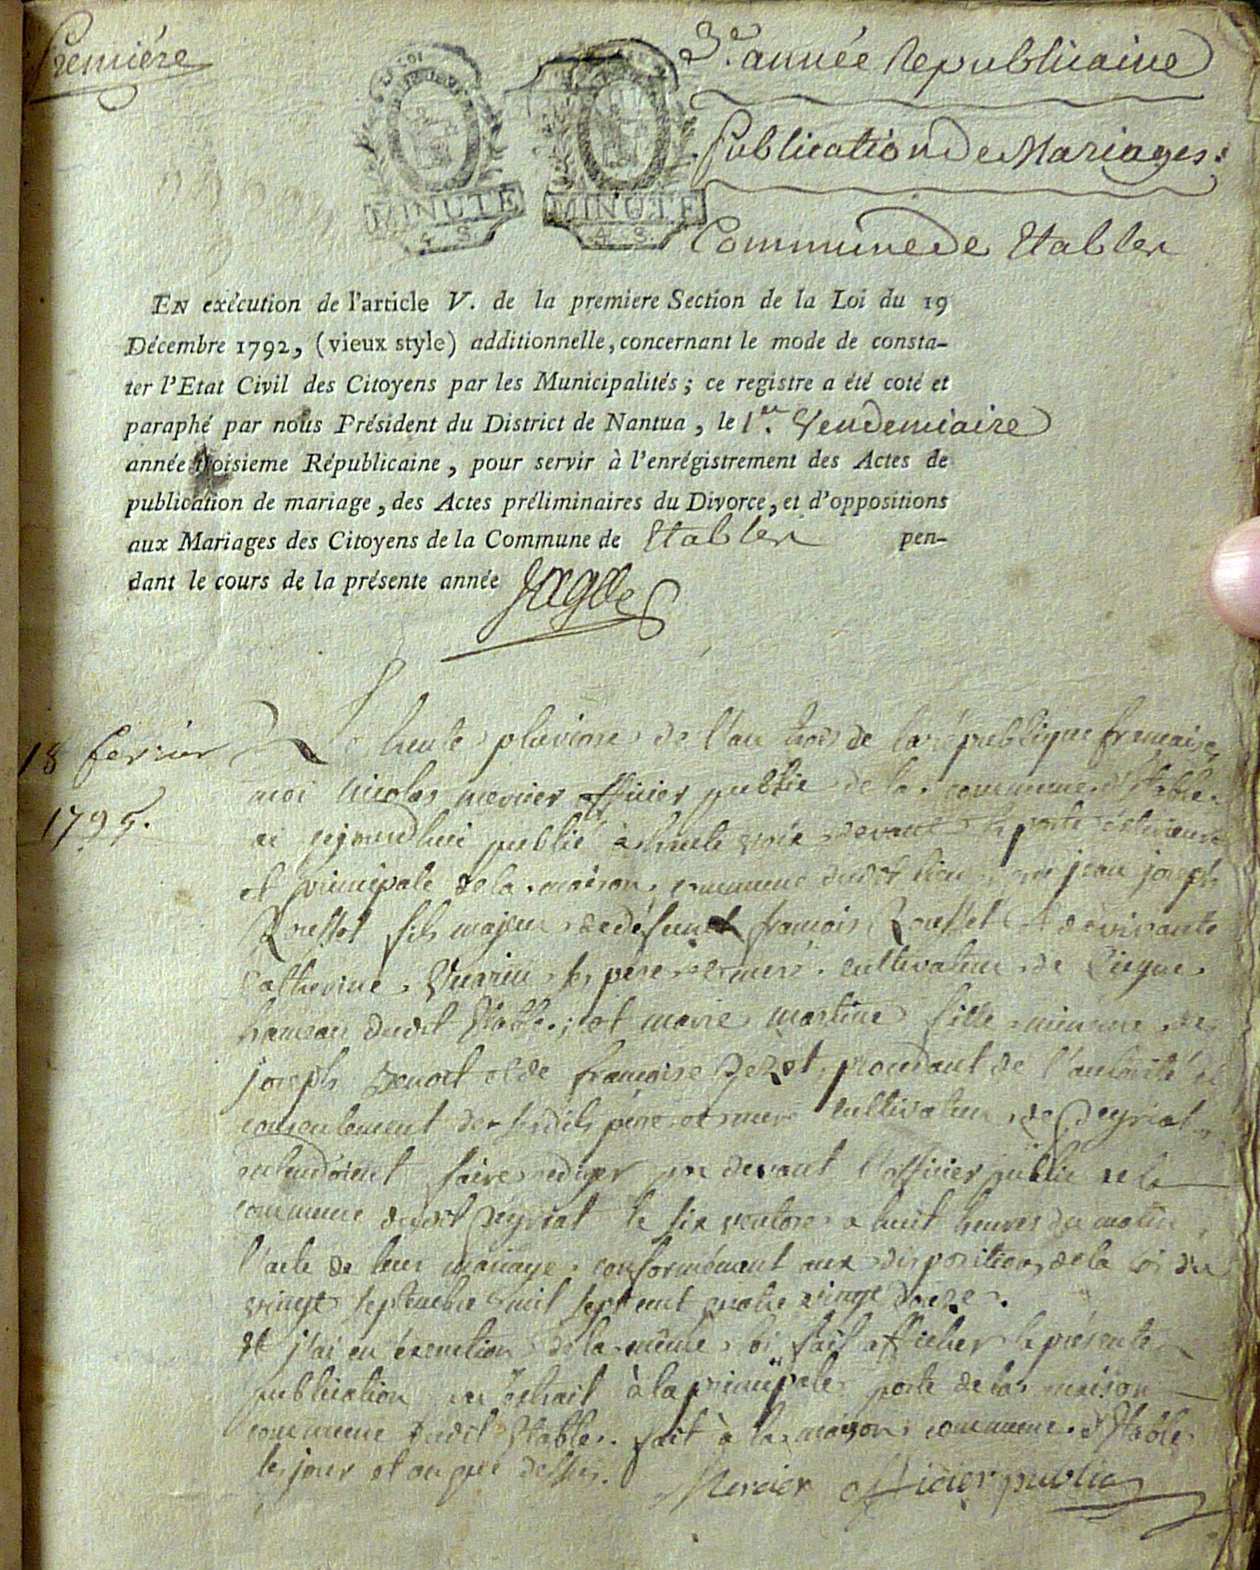 Premiére
3.e année Republicaine
Publication De Mariages.
MINUTE MINUTE
4 S 4 S
Commune de Etables
EN exécution de l'article V. de la premiere Section de la Loi du 19
Décembre 1792, (vieux style) additionnelle, concernant le mode de consta-
ter l'Etat Civil des Citoyens par les Municipalités ; ce registre a été coté et
paraphé par nous Président du District de Nantua, le 1.er Vendemiaire
année troisieme Républicaine, pour servir à l'enrégistrement des Actes de
publication de mariage, des Actes préliminaires du Divorce, et d'oppositions
aux Mariages des Citoyens de la Commune de Etables pen-
dant le cours de la présente année
18 fevrier
1795.
Le trente pluviose de l'an trois de la république francaise,
moi nicolas mercier officier public de la commune d'Etable
ai cejourdhui publié à haute voix devant la porte exterieure
et principale de la maison commune dudit lieu, que jean joseph
Rousset fils majeur de défunt francois Rousset et de vivante
Catherine Vuarin ses père et mère cultivateur de Ciegne
hameau dudit Etable ; et marie martine fille mineure de
joseph Benoit et de francoise Perot, procedant de l'autorité et
consentement de sesdits père et mere cultivateur de Peyriat,
entendoient faire rediger par devant l'officier public de la
commune dudit Peyriat le six ventose a huit heures du matin
l'acte de leur mariage, conformément aux dispositions de la loi du
vingt septembre mil sept cent quatre vingt douze.
et j'ai en éxecution de la même loi fait afficher la présente
publication par extrait à la principale porte de la maison
commune dudit Etable. fait à la maison commune d'Etable
les jour et an que dessus. Mercier officier public